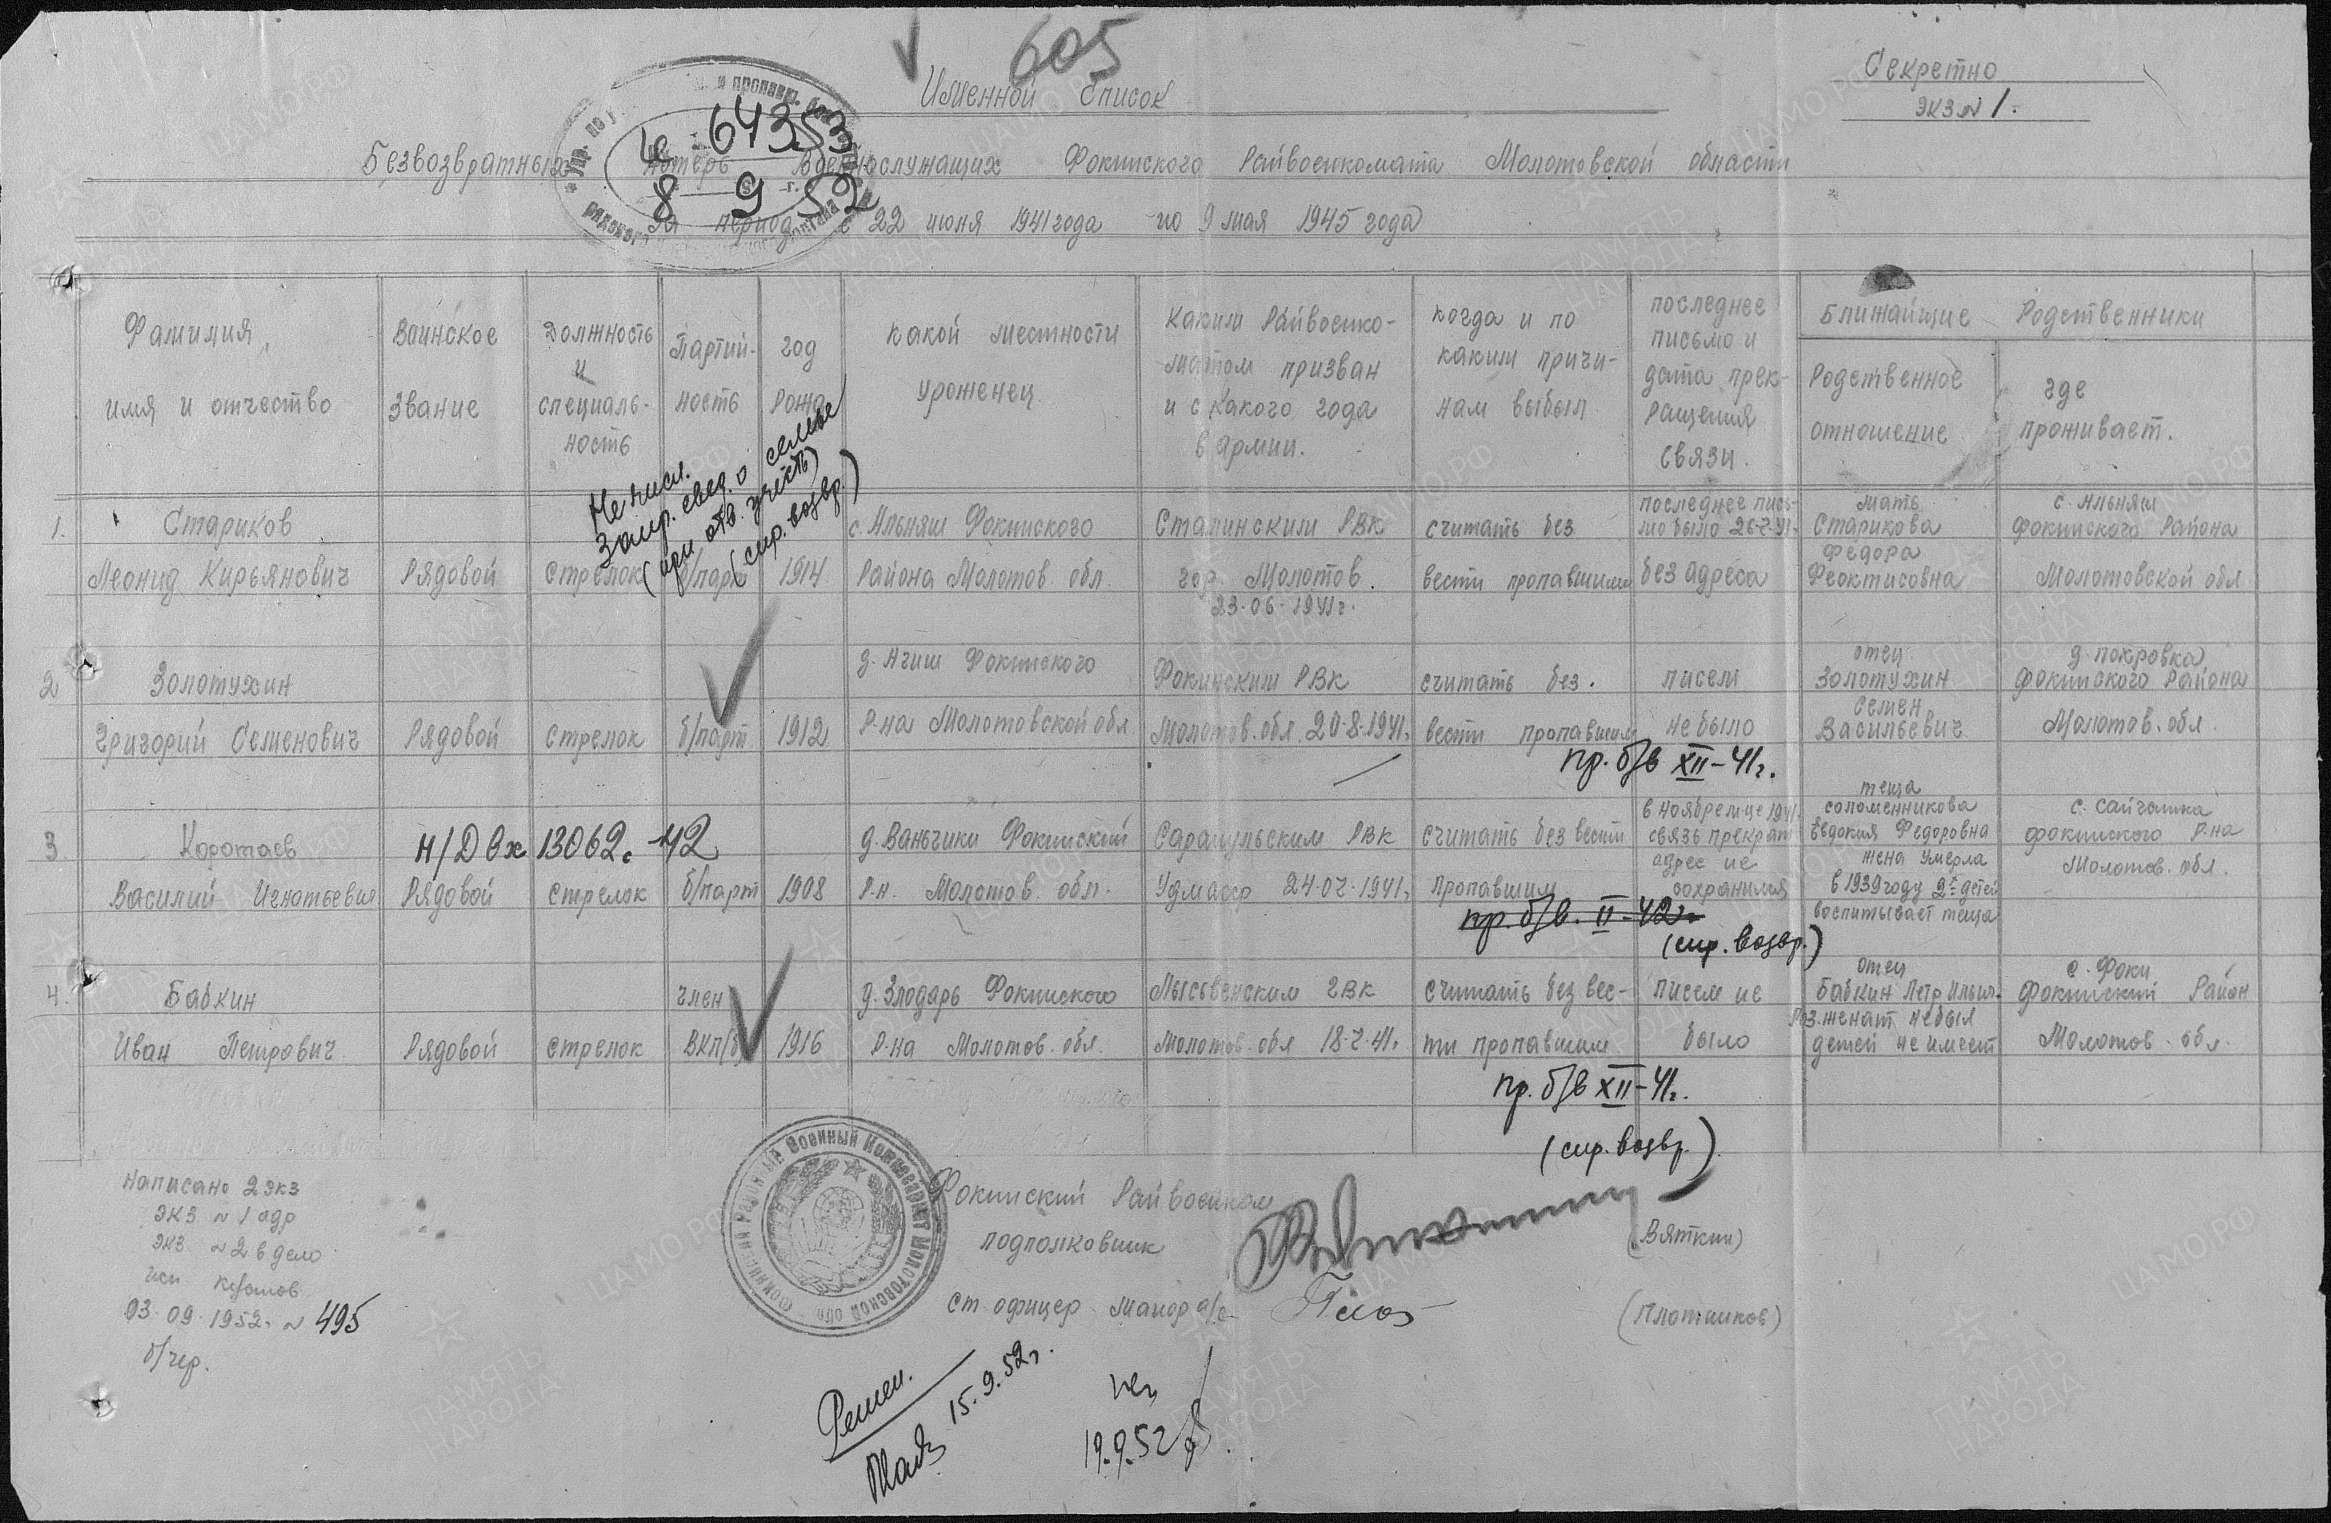 605
Секретно
Именной Список
экз № 1.
64353
Безвозвратных потерь военнослужащих Фокинского Райвоенкомата Молотовской области
8 9 52
за период с 22 июня 1941 года по 9 мая 1945 года
Фамилия, имя и отчество
Воинское звание
Должность и специальность
Партийность
год рожд
какой местности уроженец
Каким Райвоенко-
матом призван
и с какого года
в армии.
когда и по
каким причи-
нам выбыл
последнее
письмо и
дата прек-
ращения
связи.
Ближайшие Родственники
Родственное
отношение
где
проживает.
Не числ.
запр. свед. о семье
(при отв. учесть)
(спр. возвр.)
1. Стариков
Леонид Кирьянович
Рядовой
стрелок
б/парт
1914
с. Альняш Фокинского
Района Молотов. обл.
Сталинским РВК
гор. Молотов.
23.06.1941г.
считать без
вести пропавшим
последнее пись-
мо было 26-7-41.
без адреса
мать
Старикова
Федора
Феоктисовна
с. Альняш
Фокинского Района
Молотовской обл
2 Золотухин
Григорий Семенович
Рядовой
стрелок
б/парт
1912
д. Ягиш Фокинского
Р-на Молотовской обл
Фокинским РВК
Молотов. обл. 20-8-1941.
считать без.
вести пропавшим
писем
не было
пр. б/в XII-41г.
отец
Золотухин
Семен
Васильевич
д. покровка
Фокинского Района
Молотов. обл.
3. Коротаев
Василий Игнатьевич
Н/Д Вх 13062с-42
Рядовой
стрелок
б/парт
1908
д. Ваньчики Фокинский
Р-н. Молотов. обл.
Сарапульским РВК
Удмасср 24-07-1941г
Считать без вести
пропавшим
в ноябре м-це 1941.
связь прекрат
адрес не
сохранился
пр. б/в. II-42г.
(спр. возвр.)
теща
соломенникова
Евдокия Федоровна
жена умерла
в 1939 году 2х детей
воспитывает теща
с. сайгатка
фокинского Р-на
Молотов. обл.
4. Бабкин
Иван Петрович
Рядовой
стрелок
член
ВКП/б/
1916
д. Злодарь Фокинского
Р-на Молотов. обл.
Лысьвенским ГВК
Молотов. обл 18-7-41.
Считать без вес-
ти пропавшим
писем не
было
пр. б/в XII-41г.
(спр. возвр.)
отец
Бабкин Петр Ильич.
женат не был
детей не имеет
с. Фоки
Фокинский Район
Молотов. обл.
Написано 2 экз
экз № 1 адр
экз № 2 в дело
исп
03.09.1952г № 495
б/чер.
Фокинский Районный Военный Комиссариат Молотовской обл
Фокинский Райвоенком
подполковник
(Вяткин)
ст. офицер майор а/с
(Плотников)
15.9.52г.
19.9.52
ЦАМО РФ
ПАМЯТЬ НАРОДА